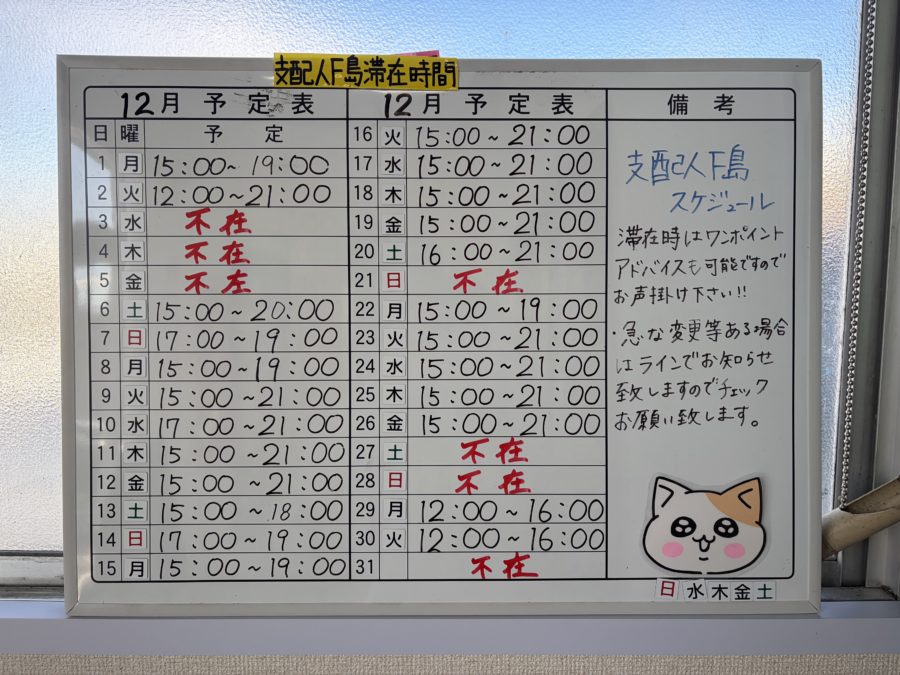 支配人F島滞在時間
12月 予定表
日 曜 予定
1 月 15:00~19:00
2 火 12:00~21:00
3 水 不在
4 木 不在
5 金 不在
6 土 15:00~20:00
7 日 17:00~19:00
8 月 15:00~19:00
9 火 15:00~21:00
10 水 17:00~21:00
11 木 15:00~21:00
12 金 15:00~21:00
13 土 15:00~18:00
14 日 17:00~19:00
15 月 15:00~19:00
12月 予定表
16 火 15:00~21:00
17 水 15:00~21:00
18 木 15:00~21:00
19 金 15:00~21:00
20 土 16:00~21:00
21 日 不在
22 月 15:00~19:00
23 火 15:00~21:00
24 水 15:00~21:00
25 木 15:00~21:00
26 金 15:00~21:00
27 土 不在
28 日 不在
29 月 12:00~16:00
30 火 12:00~16:00
31 不在
備考
支配人F島
スケジュール
滞在時はワンポイント
アドバイスも可能ですので
お声掛け下さい!!
・急な変更等ある場合
はラインでお知らせ
致しますのでチェック
お願い致します。
日水木金土